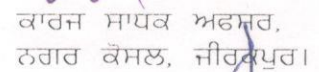 ਕਾਰਜ ਸਾਧਕ ਅਫਸਰ,
ਨਗਰ ਕੌਂਸਲ, ਜੀਰਕਪੁਰ।